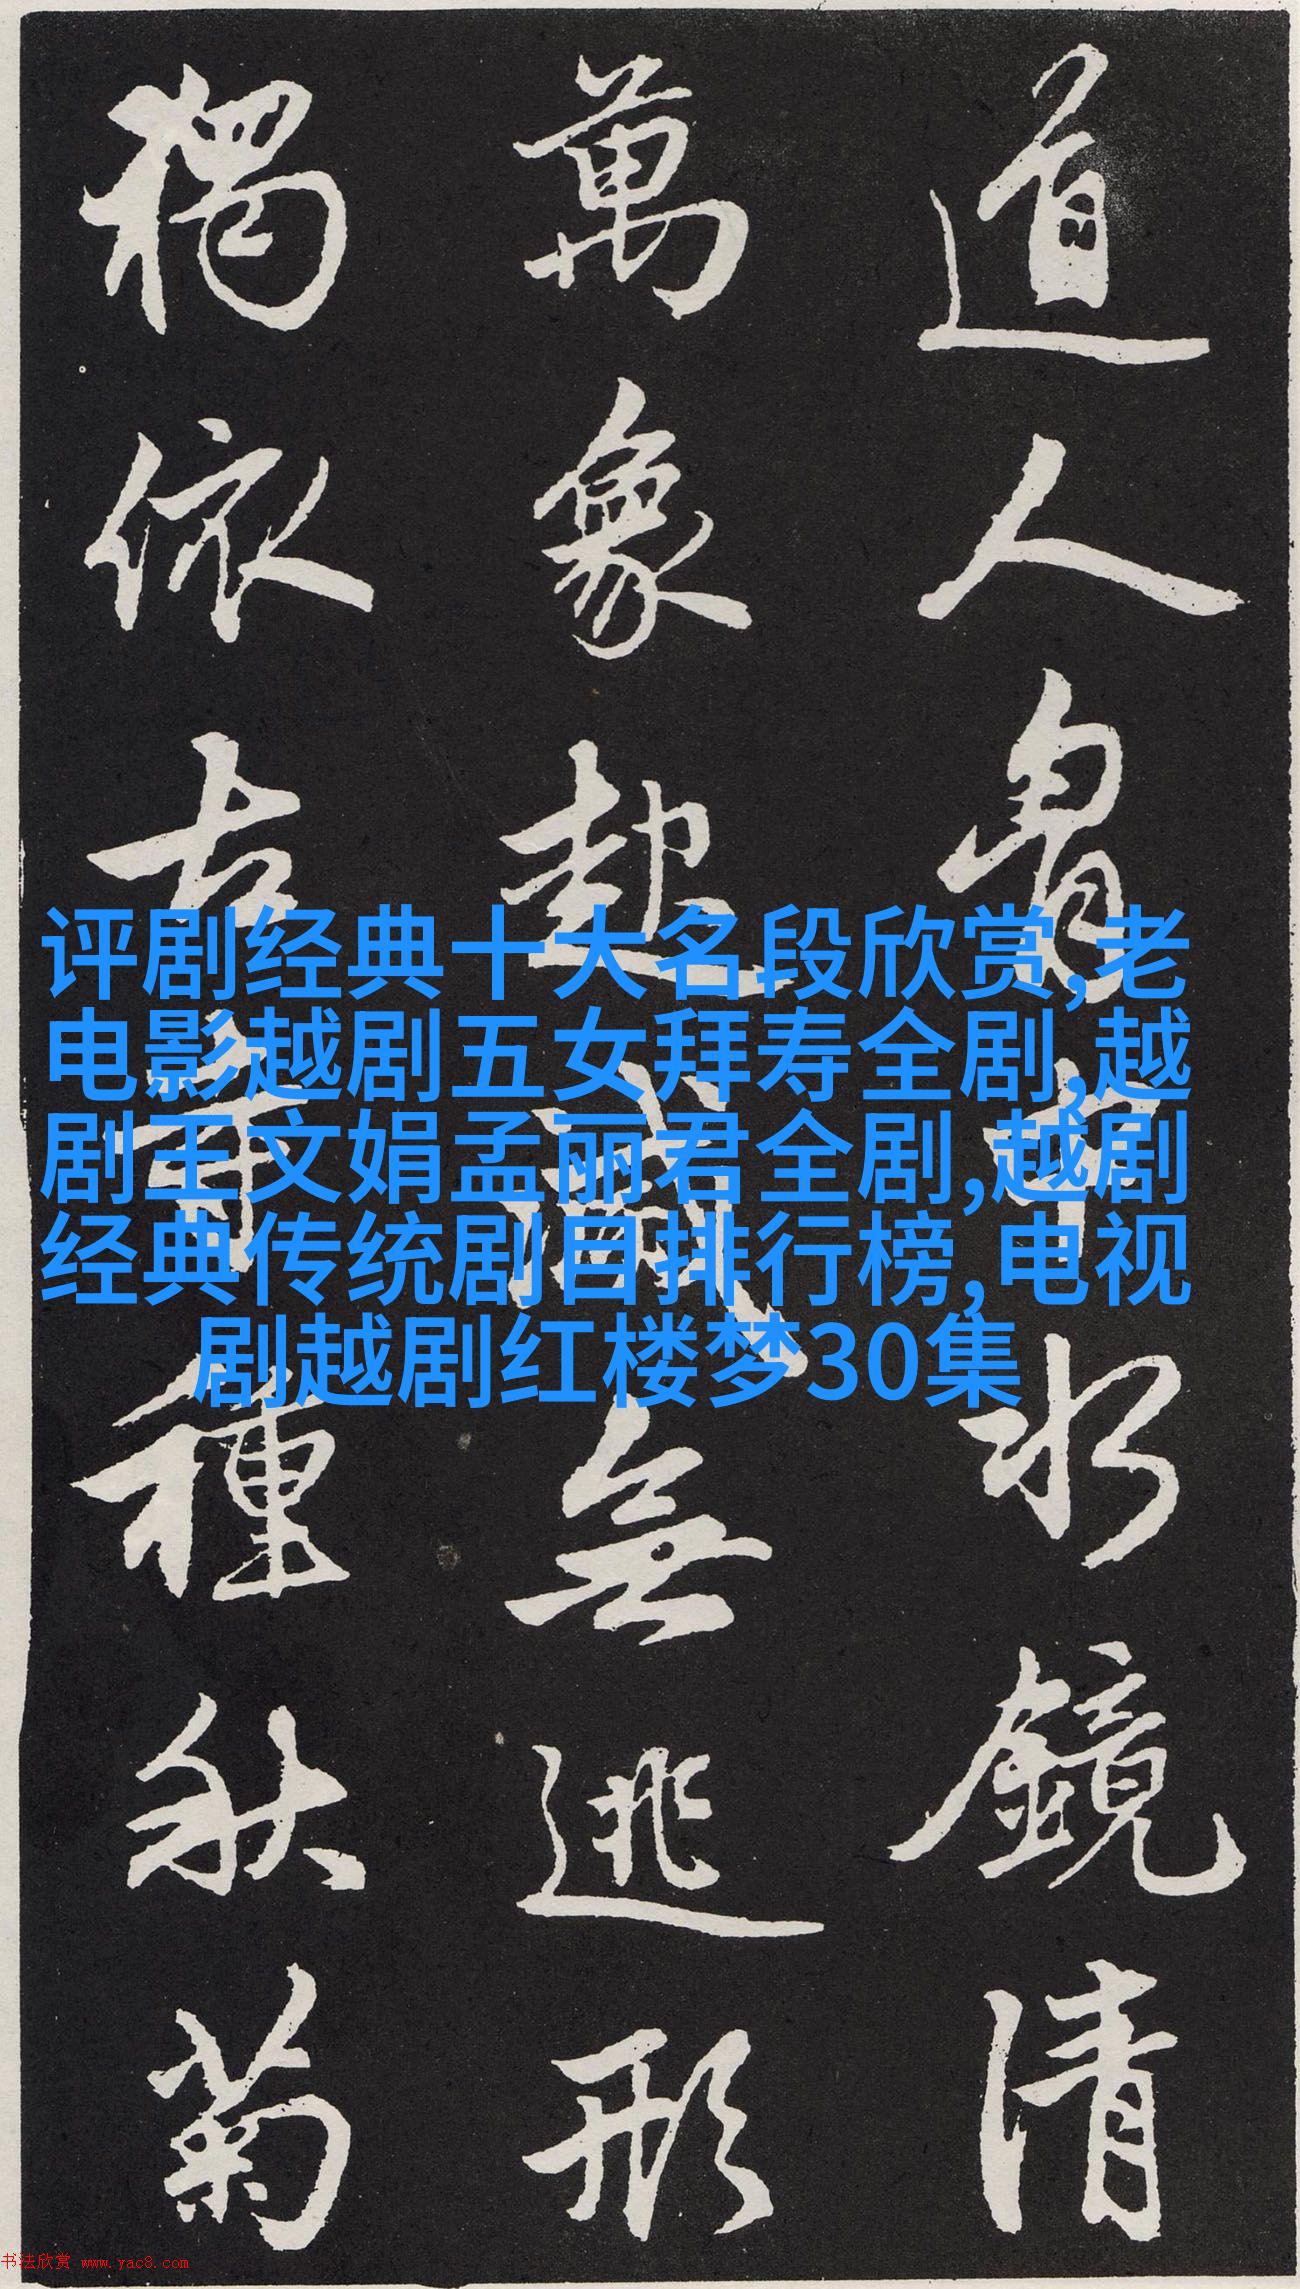 道人胷中水鏡清
萬象起滅無逃形
獨依古寺種秋菊
评剧经典十大名段欣赏,老
电影越剧五女拜寿全剧,越
剧王文娟孟丽君全剧,越剧
经典传统剧目排行榜,电视
剧越剧红楼梦30集
书法欣赏 www.yac8.com